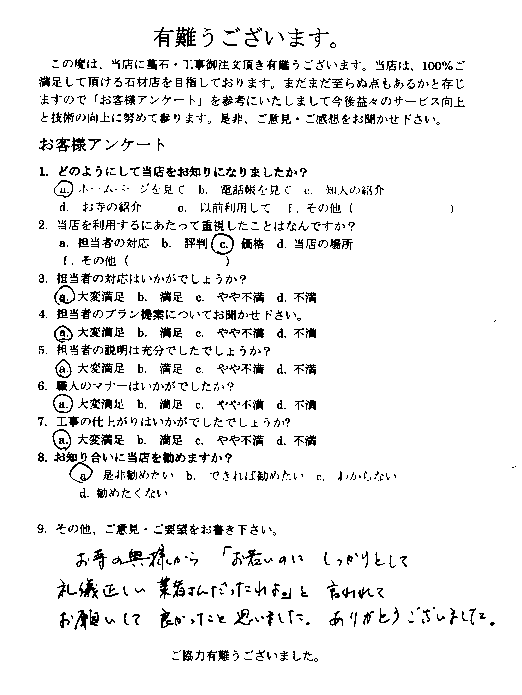 有難うございます。
この度は、当店に墓石・工事御注文頂き有難うございます。当店は、100%ご
満足して頂ける石材店を目指しております。まだまだ至らぬ点もあるかと存じ
ますので「お客様アンケート」を参考にいたしまして今後益々のサービス向上
と技術の向上に努めて参ります。是非、ご意見・ご感想をお聞かせ下さい。
お客様アンケート
1. どのようにして当店をお知りになりましたか?
a. ホームページを見て b. 電話帳を見て c. 知人の紹介
d. お寺の紹介 e. 以前利用して f. その他 ( )
2. 当店を利用するにあたって重視したことはなんですか?
a. 担当者の対応 b. 評判 c. 価格 d. 当店の場所
f. その他 ( )
3. 担当者の対応はいかがでしょうか?
a. 大変満足 b. 満足 c. やや不満 d. 不満
4. 担当者のプラン提案についてお聞かせ下さい。
a. 大変満足 b. 満足 c. やや不満 d. 不満
5. 担当者の説明は充分でしたでしょうか?
a. 大変満足 b. 満足 c. やや不満 d. 不満
6. 職人のマナーはいかがでしたか?
a. 大変満足 b. 満足 c. やや不満 d. 不満
7. 工事の仕上がりはいかがでしたでしょうか?
a. 大変満足 b. 満足 c. やや不満 d. 不満
8. お知り合いに当店を勧めますか?
a 是非勧めたい b. できれば勧めたい c. わからない
d. 勧めたくない
9. その他、ご意見・ご要望をお書き下さい。
お寺の奥様から 「お若いのに しっかりとして
礼儀正しい 業者さんだったわよ」と 言われて
お願いして 良かったと思いました。ありがとうございました。
ご協力有難うございました。